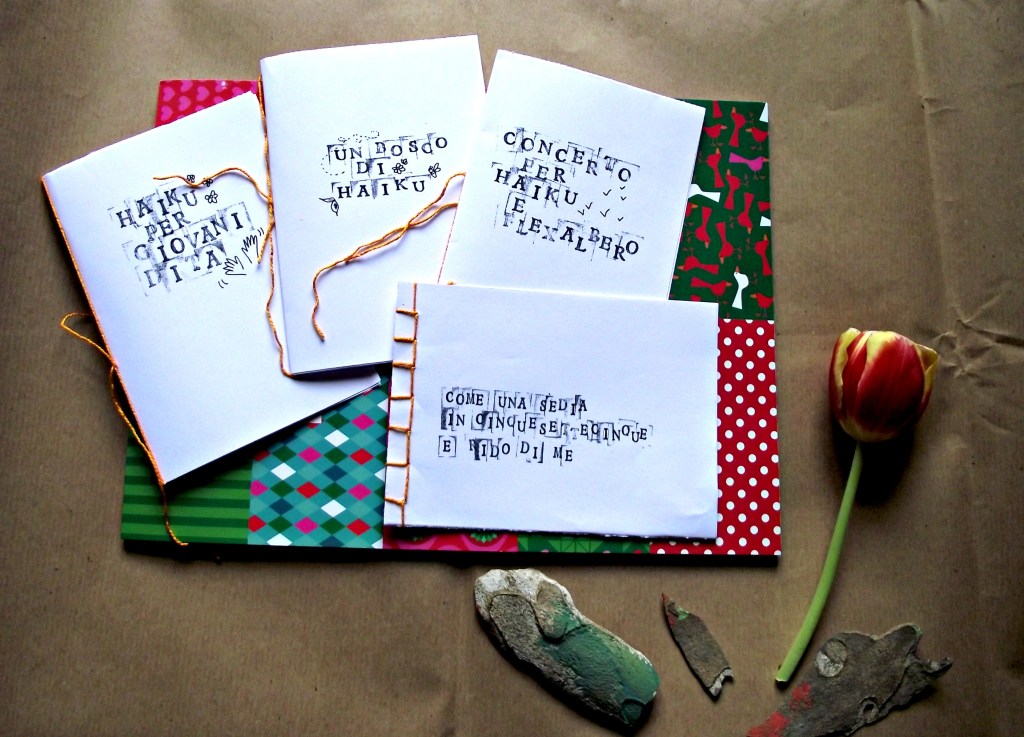 HAIKU
PER
GIOVANI
DITA
UN BOSCO
DI
HAIKU
CONCERTO
PER
HAIKU
E
FLEXALBERO
COME UNA SEDIA
IN CINQUESETTECINQUE
E RIDO DI ME